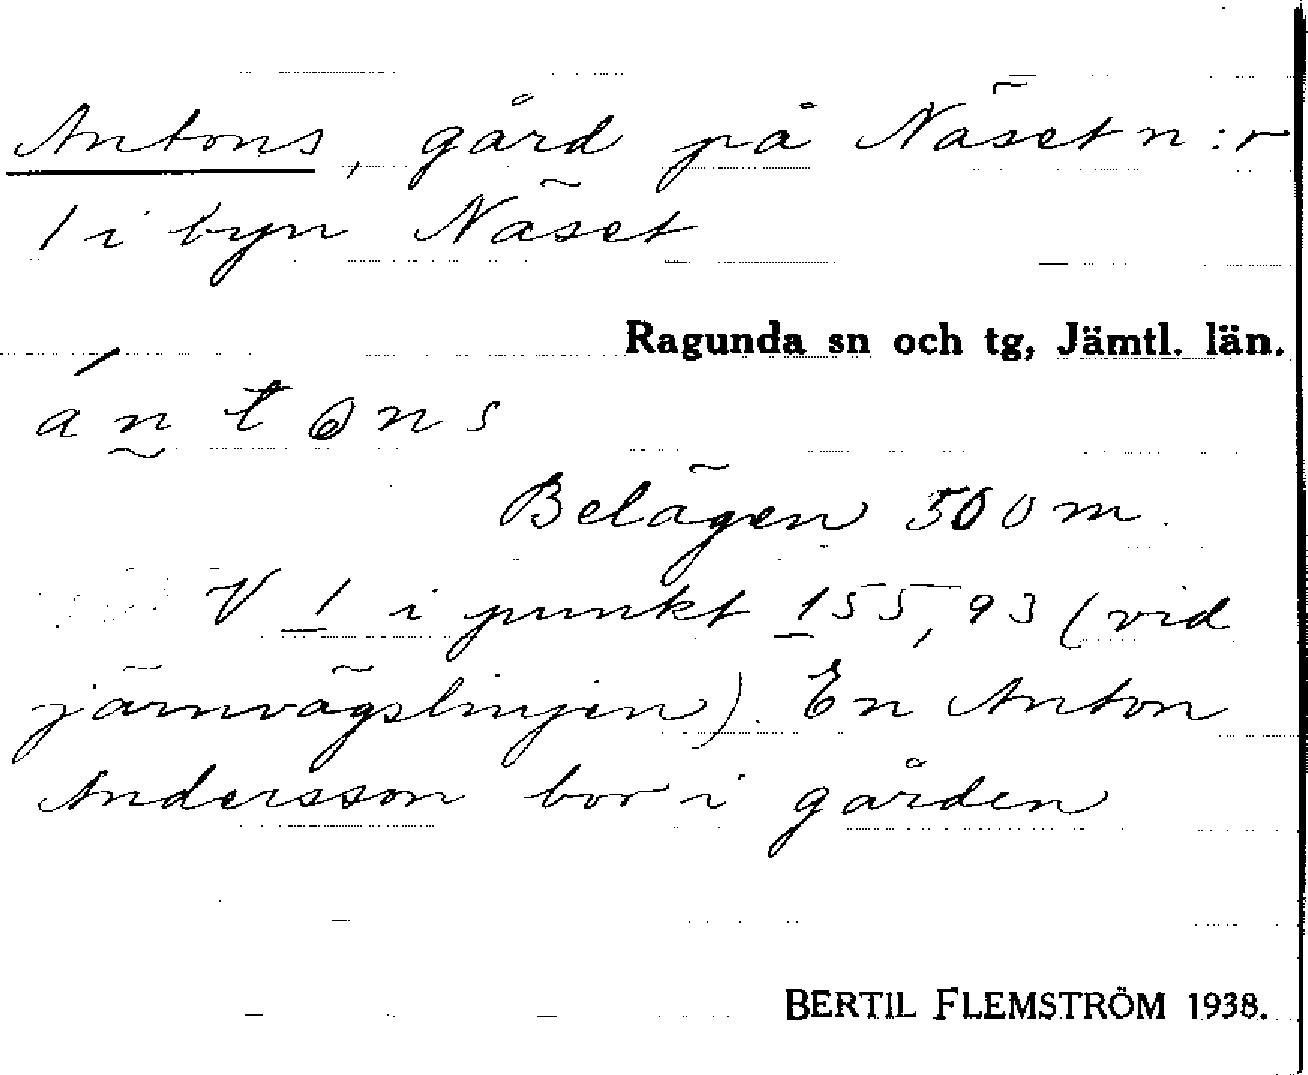 Antons, gård på Näset n:r
1 i byn Näset
Ragunda sn och tg, Jämtl. län.
ántɷns
Belägen 500 m
V 1 i punkt 155,93 (vid
järnvägslinjen). En Anton
Andersson bor i gården
BERTIL FLEMSTRÖM 1938.